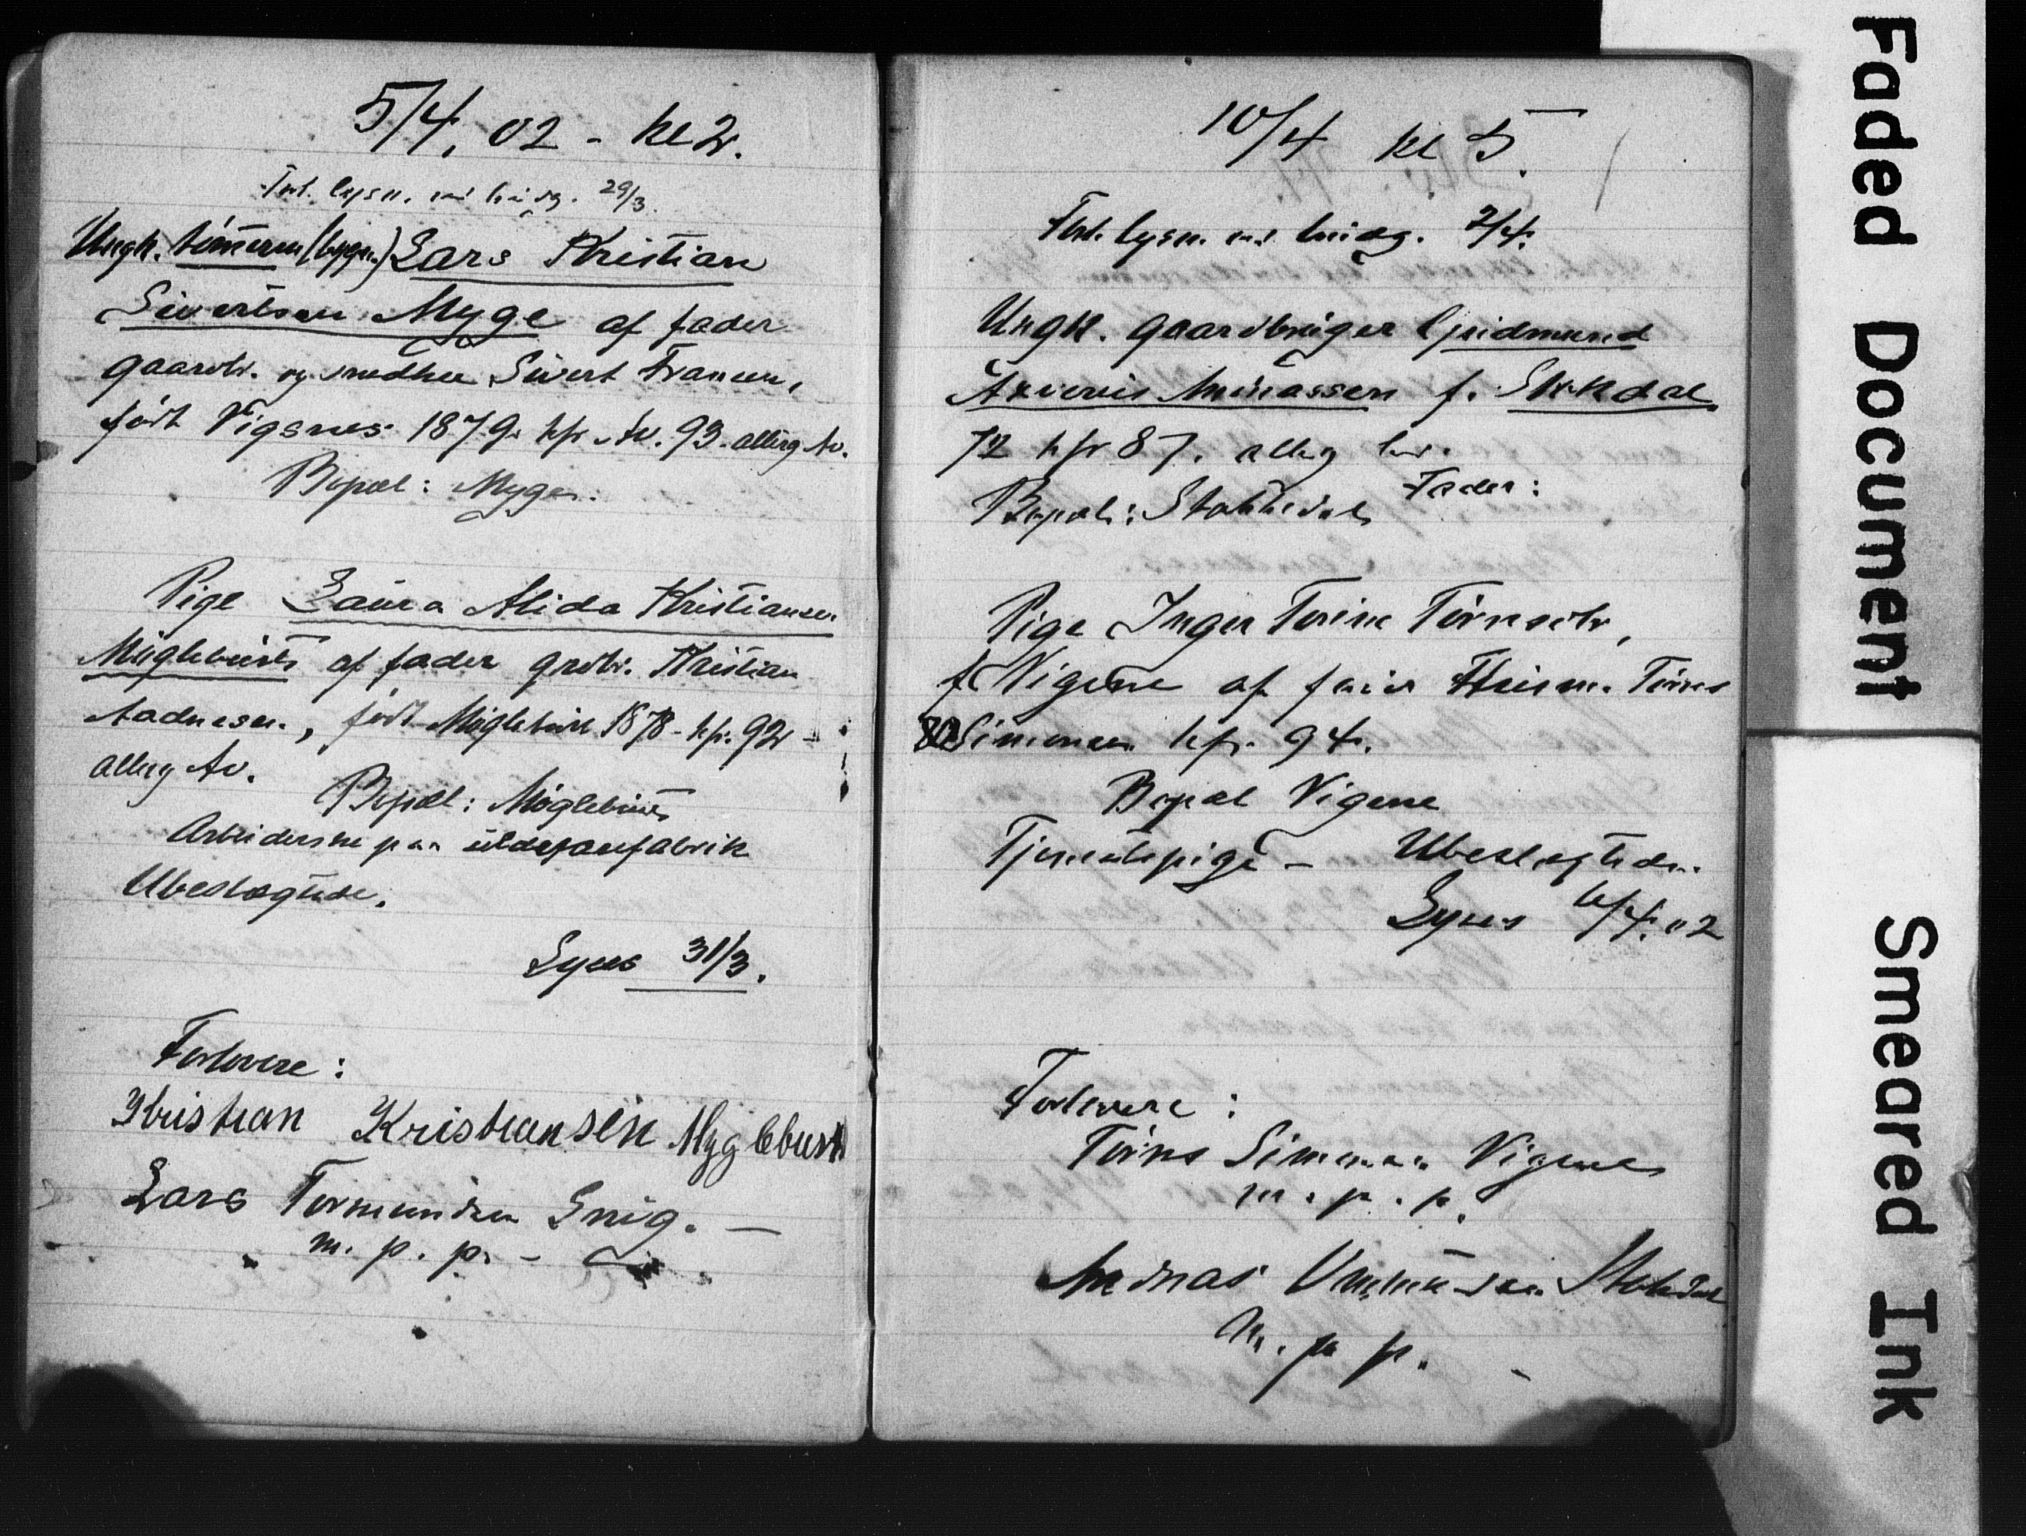 5/4. 02 - kl 2.
Forl. lysn. 29/3.
Ungk. tømmerm (bygn.) Lars Kristian
Sivertsen Myge af fader
gaardbr. og snedker Sivert Fransen,
født Vigsnes 1879. kfr. Av. 93. allerg Av.
Bopæl: Myge.
Pige Laura Alida Kristiansen
Møglebust af fader grdbr. Kristian
Aadnesen., født Møglebust 1878 - kfr. 92 -
allerg Av.
Bopæl: Møglebust
Arbeiderske paa uldspanfabrik
Ubeslægtede.
Lyses 31/3.
Forlovere:
Kristian Kristiansen Myglebust
Lars Tormundsen Gnig. —
m. p. p. -
10/4 kl 5.
Forl. lysn. 2/4.
Ungk. gaardbruger Gudmund
Andreassen f. Stokdal
72 kfr 87. allerg
Bopæl: Stokkedal Fader:
Pige Inger Tørnsdtr,
f Vigene af fader Tørns
Simonsen kfr. 94.
Bopæl Vigene
Tjenestepige - Ubeslægtede.
Lyses 6/4. 02
Forlovere:
Tørns Simonsen Vigenes
m. p. p.
Andreas Stokdal
m. p p.
Faded Document
Smeared Ink